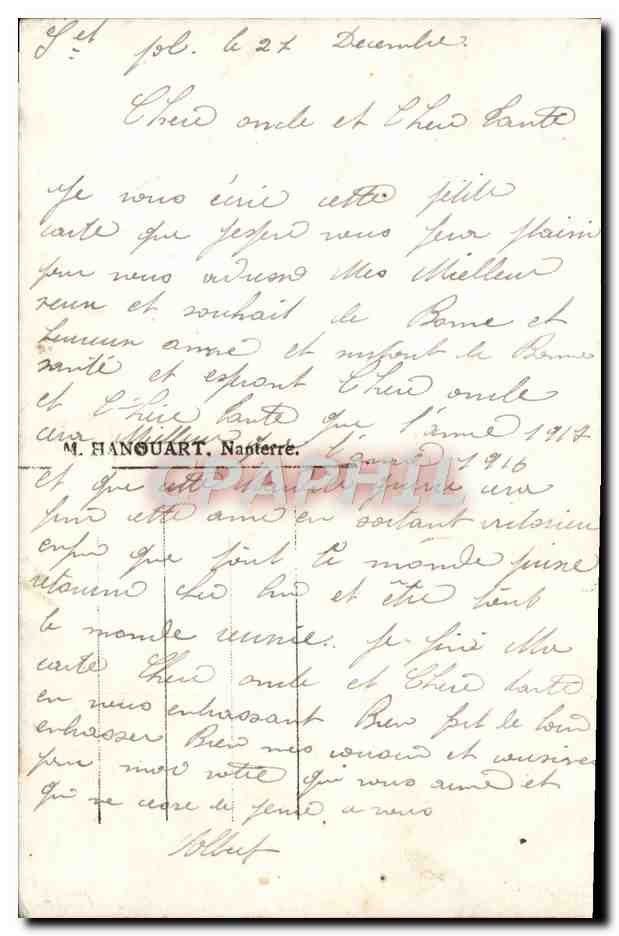 St pol. le 27 Decembre.
Chere oncle et Chere tante
Je vous écrie cette petite
carte que jespere vous fera plaisir
pour vous adresse Mes Meilleur
veux et souhait de Bonne et
heureux année et surtout de Bonne
santé et esperant Chere oncle
et Chère tante que l'année 1917
cera Meilleur l'année 1916
M. HANOUART, Nanterre.
CPAPHIL
et que cette guerre cera
fini cette année en sortant victorieu
enfin que tout le monde puise
retourné chez lui et être tout
le monde reunie. Je finie Ma
carte Chere oncle et Chere tante
en vous enbrassant Bien fort de loin
enbrasser Bien mes cousin et cousines
pour moi votre qui vous aime et
qui ne cesse de pensé a vous
Albert